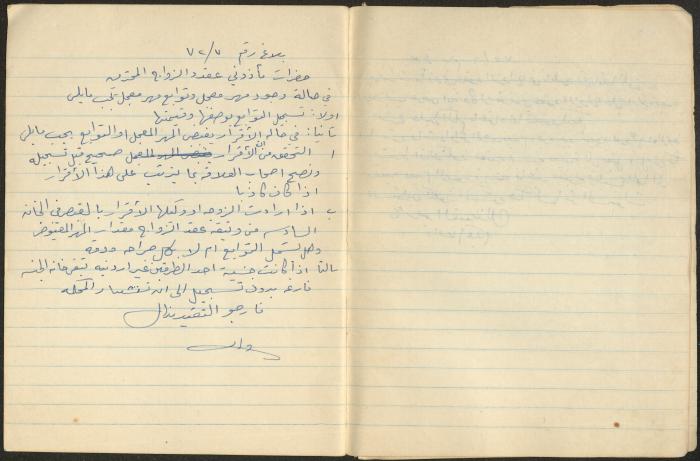 بلاغ رقم ٧٢/٧
حضرات مأذوني عقود الزواج المحترمين
في حالة وجود مهر معجل وتوابع مهر معجل يجب مايلي
اولا: تسجل التوابع بوصفها وقيمتها
ثانيا: في حالة الأقرار بقبض المهر المعجل او التوابع يجب مايلي
ا التحقق من ان الأقرار بقبض المهر المعجل صحيح قبل تسجيله
ونصح اصحاب العلاقة بما يترتب على هذا الأقرار
اذا كان كاذبا
ب اذا ارادت الزوجه او وكيلها الأقرار بالقبض في الخانة
السادسه من وثيقه عقد الزواج مقدار المهر المقبوض
وهل يشمل التوابع ام لا بكل صراحه ودقه
ثالثا اذا كانت جنسية احد الطرفين غير اردنيه تبقى خانة الجنسيه
فارغه بدون تسجيل الى ان تستشار المحكمه
فارجو التقيد بذلك